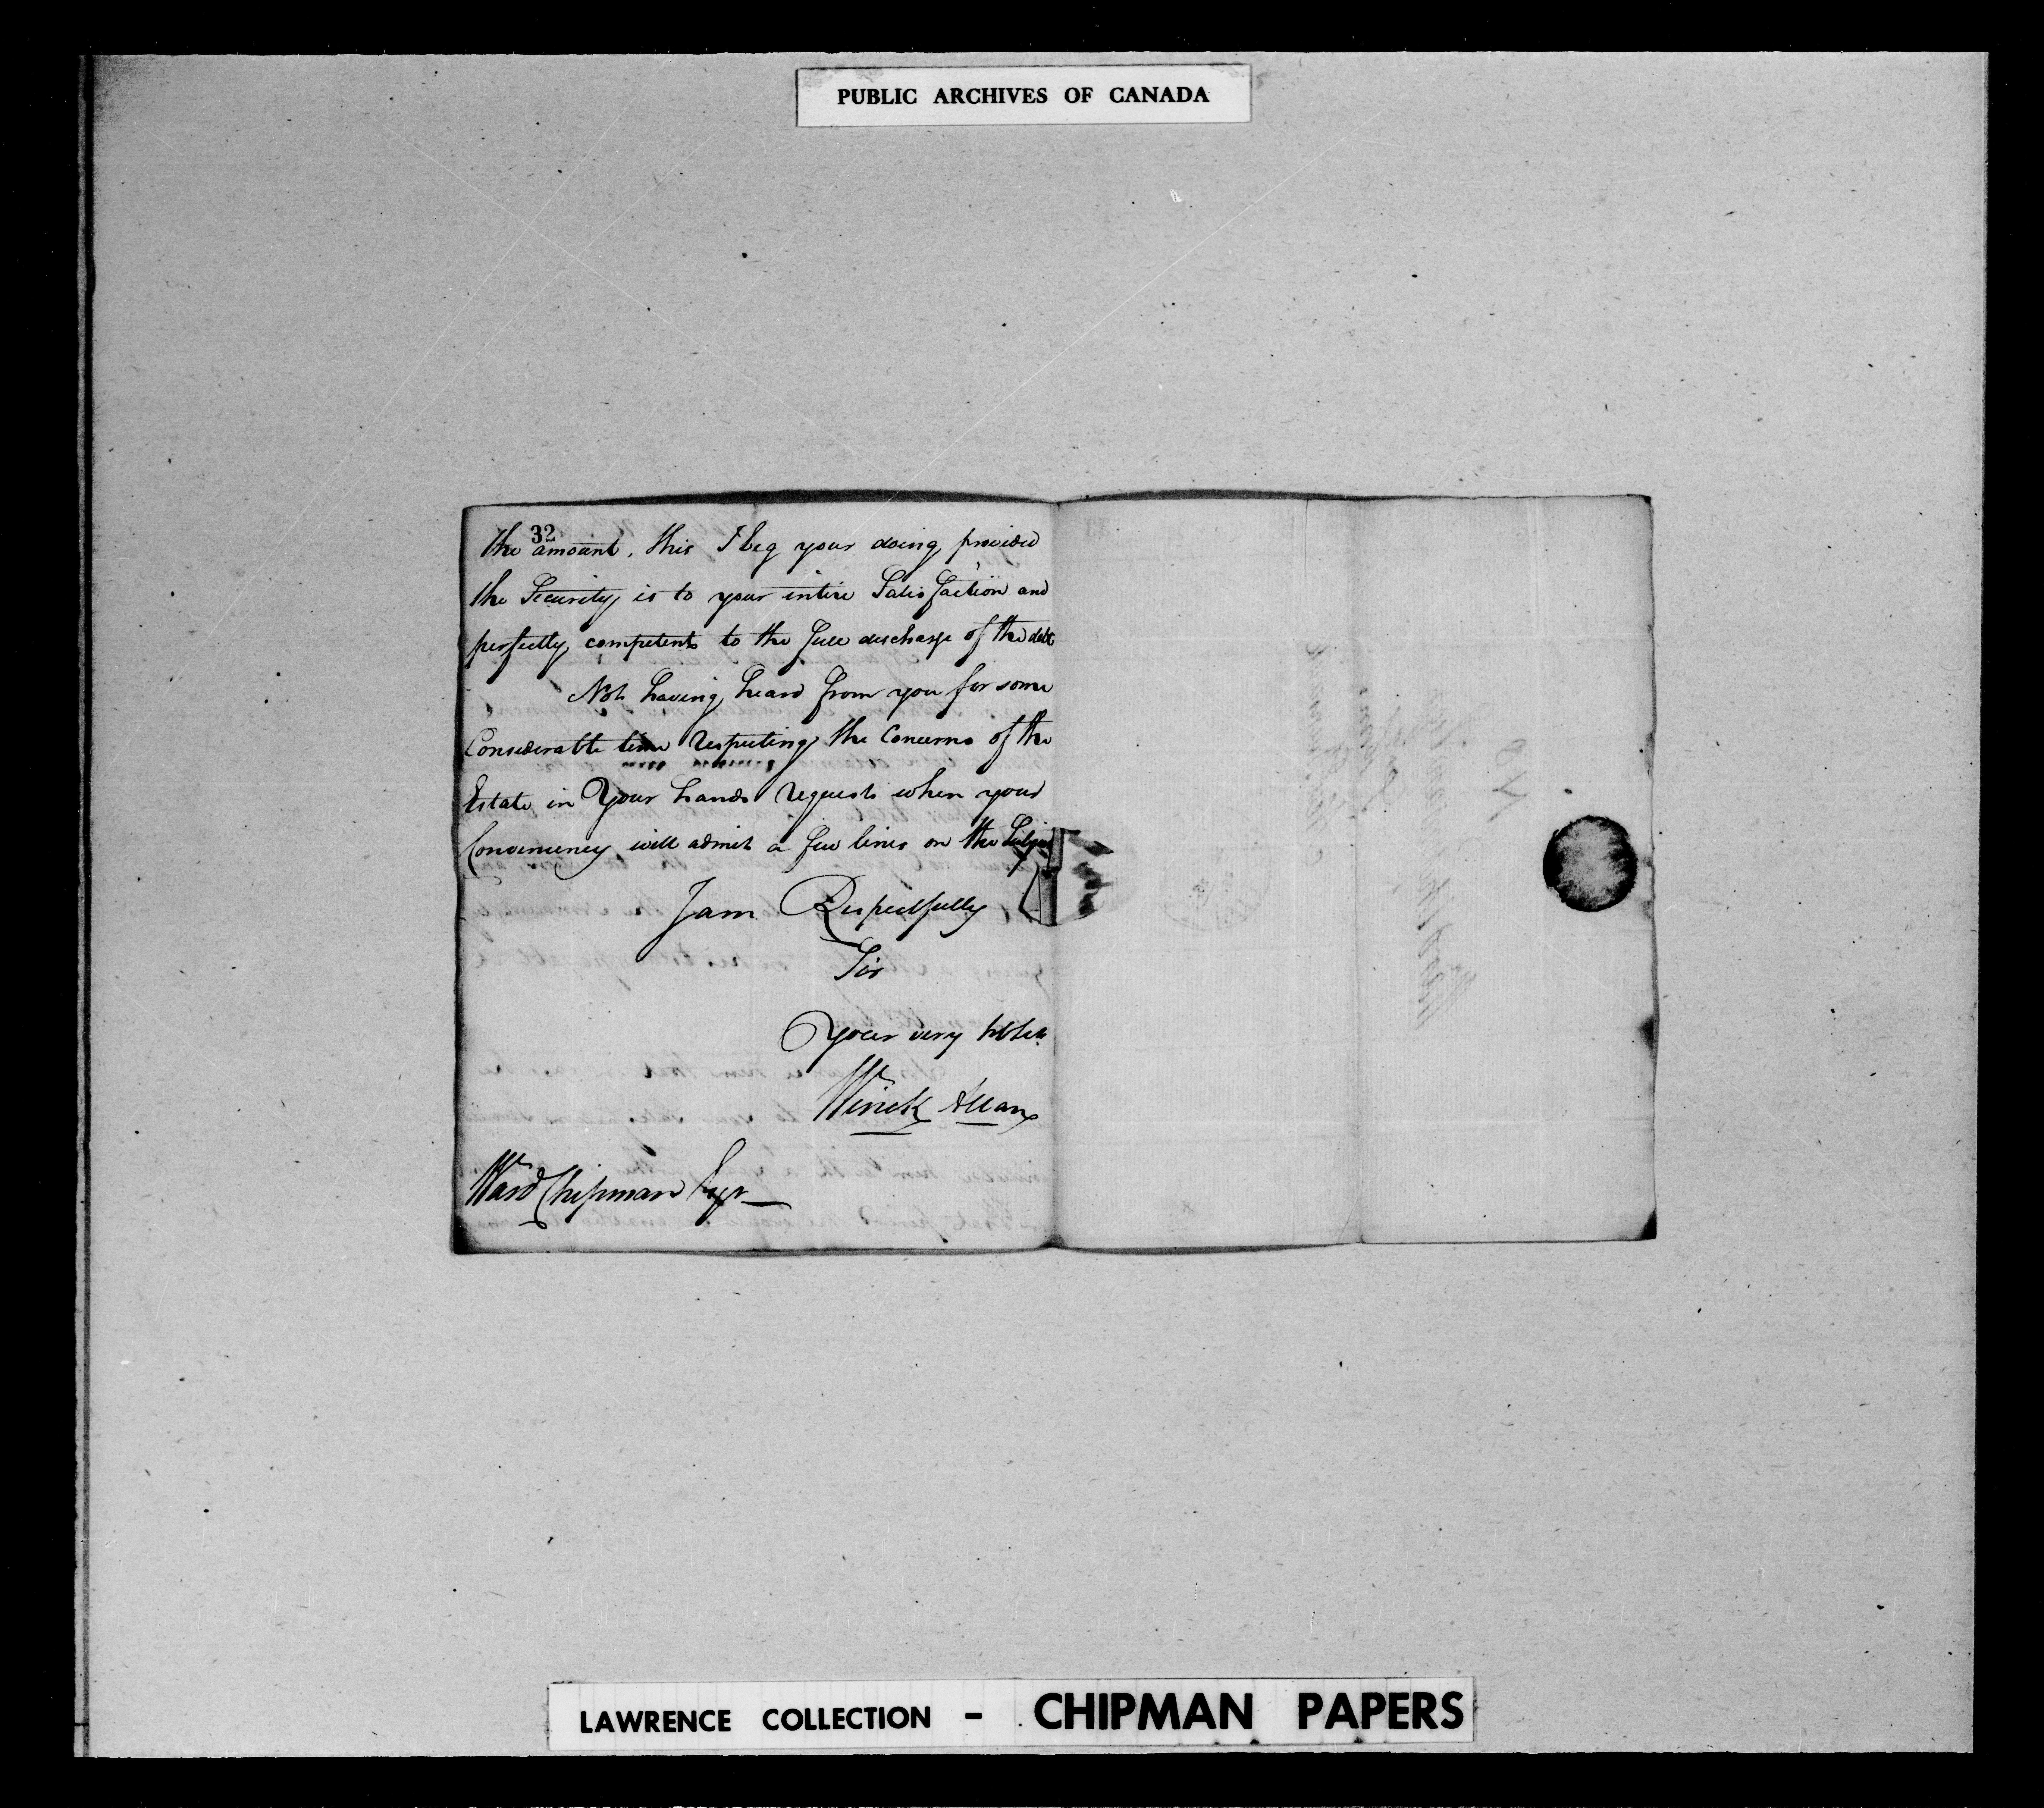 PUBLIC ARCHIVES OF CANADA
32
the amount, this I beg your doing provided
the Security is to your intire Satisfaction and
perfectly competent to the full discharge of the debt
Not having heard from you for some
Considerable time respecting the Concerns of the
Estate in Your hands requests when your
Conveniency will admit a few lines on the Subject
I am Respectfully
Sir
Your very
Winck Allan
Ward Chipman Esqr
LAWRENCE COLLECTION - CHIPMAN PAPERS